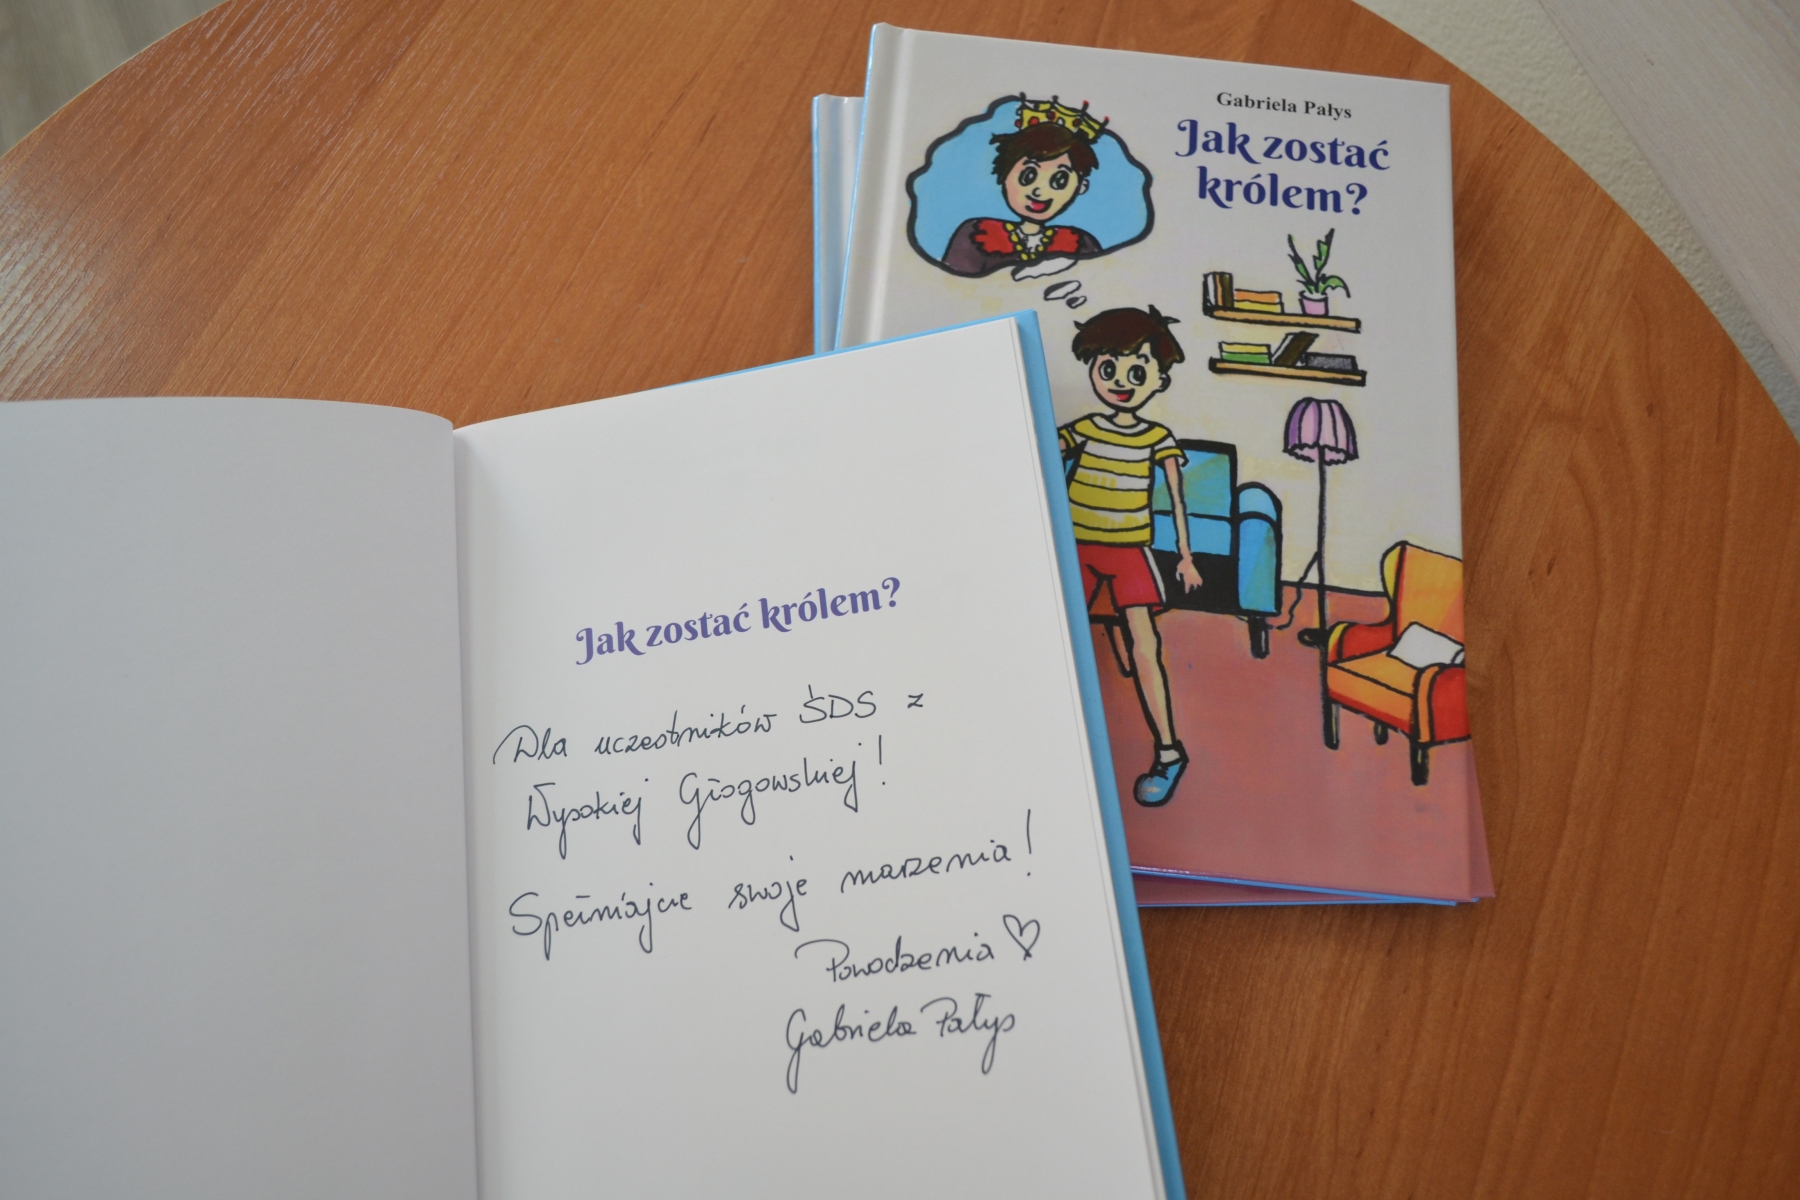 Gabriela Pałys
Jak zostać
królem?
Jak zostać królem?
Dla uczestników ŚDS z
Wysokiej Głogowskiej!
Spełniajcie swoje marzenia!
Powodzenia ♡
Gabriela Pałys